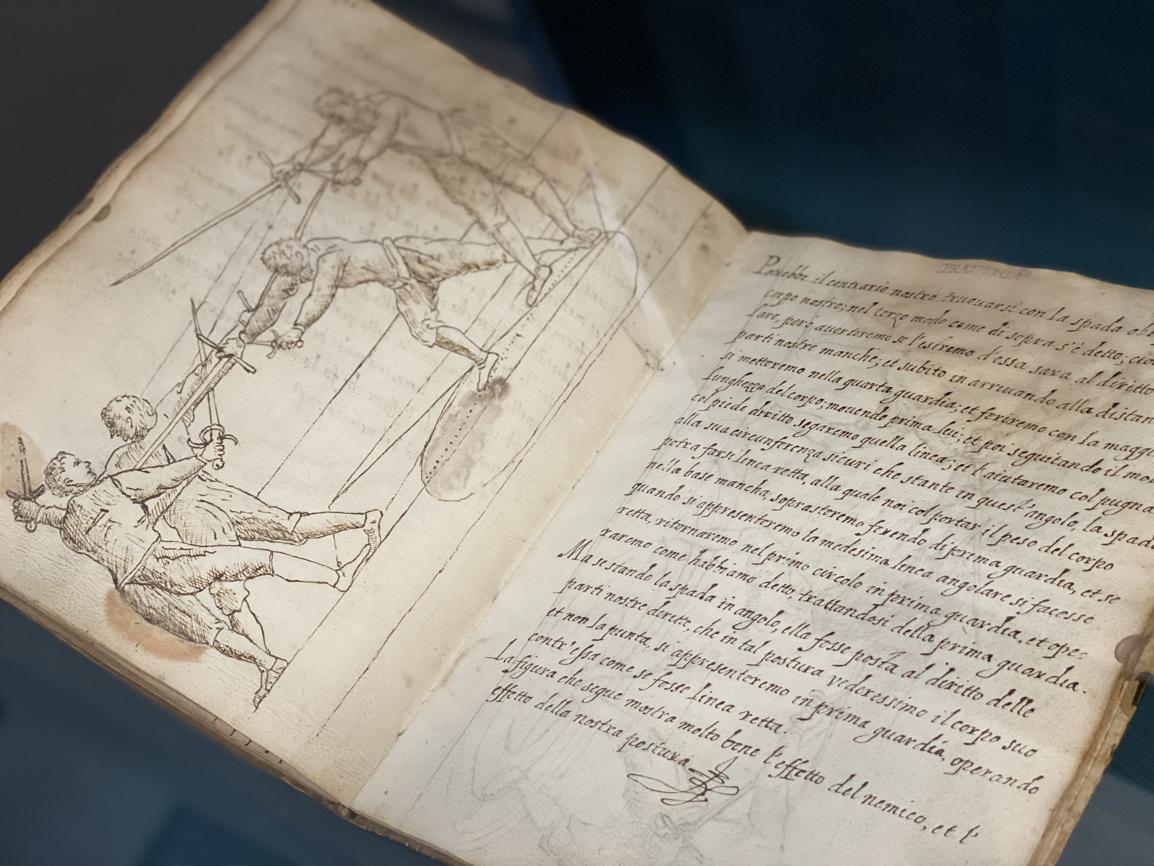 Potrebbe il contrario nostro truovarsi con la spada
corpo nostro; nel terzo modo come di sopra s'è detto; cioè
fare, però auertiremo se l'estremo d'essa sara al diritto
parti nostre manche; et subito in arriuando alla distan
si metteremo nella quarta guardia; et feriremo con la maggi
lunghezza del corpo; mouendo prima lui; et poi seguitando il mo
col piede diritto, segaremo quella linea; et l'aiutaremo col pugno
alla sua circunferenza sicuri che stante in quest'angolo, la spada
potra farsi linea retta, alla quale noi col portar il peso del corpo
nella base mancha, soprasteremo ferendo di prima guardia, et se
quando si appresenteremo la medesima linea angolare si facesse
retta, ritornaremo nel primo circolo in prima guardia, et ope-
raremo come habbiamo detto, trattandosi della prima guardia.
Ma se stando la spada in angolo, ella fosse posta al diritto delle
parti nostre diritte, che in tal postura vederessimo il corpo suo
et non la punta, si appresenteremo in prima guardia, operando
contr'essa come se fosse linea retta.
La figura che segue mostra molto bene l'effetto del nemico, et l'
effetto della nostra postura